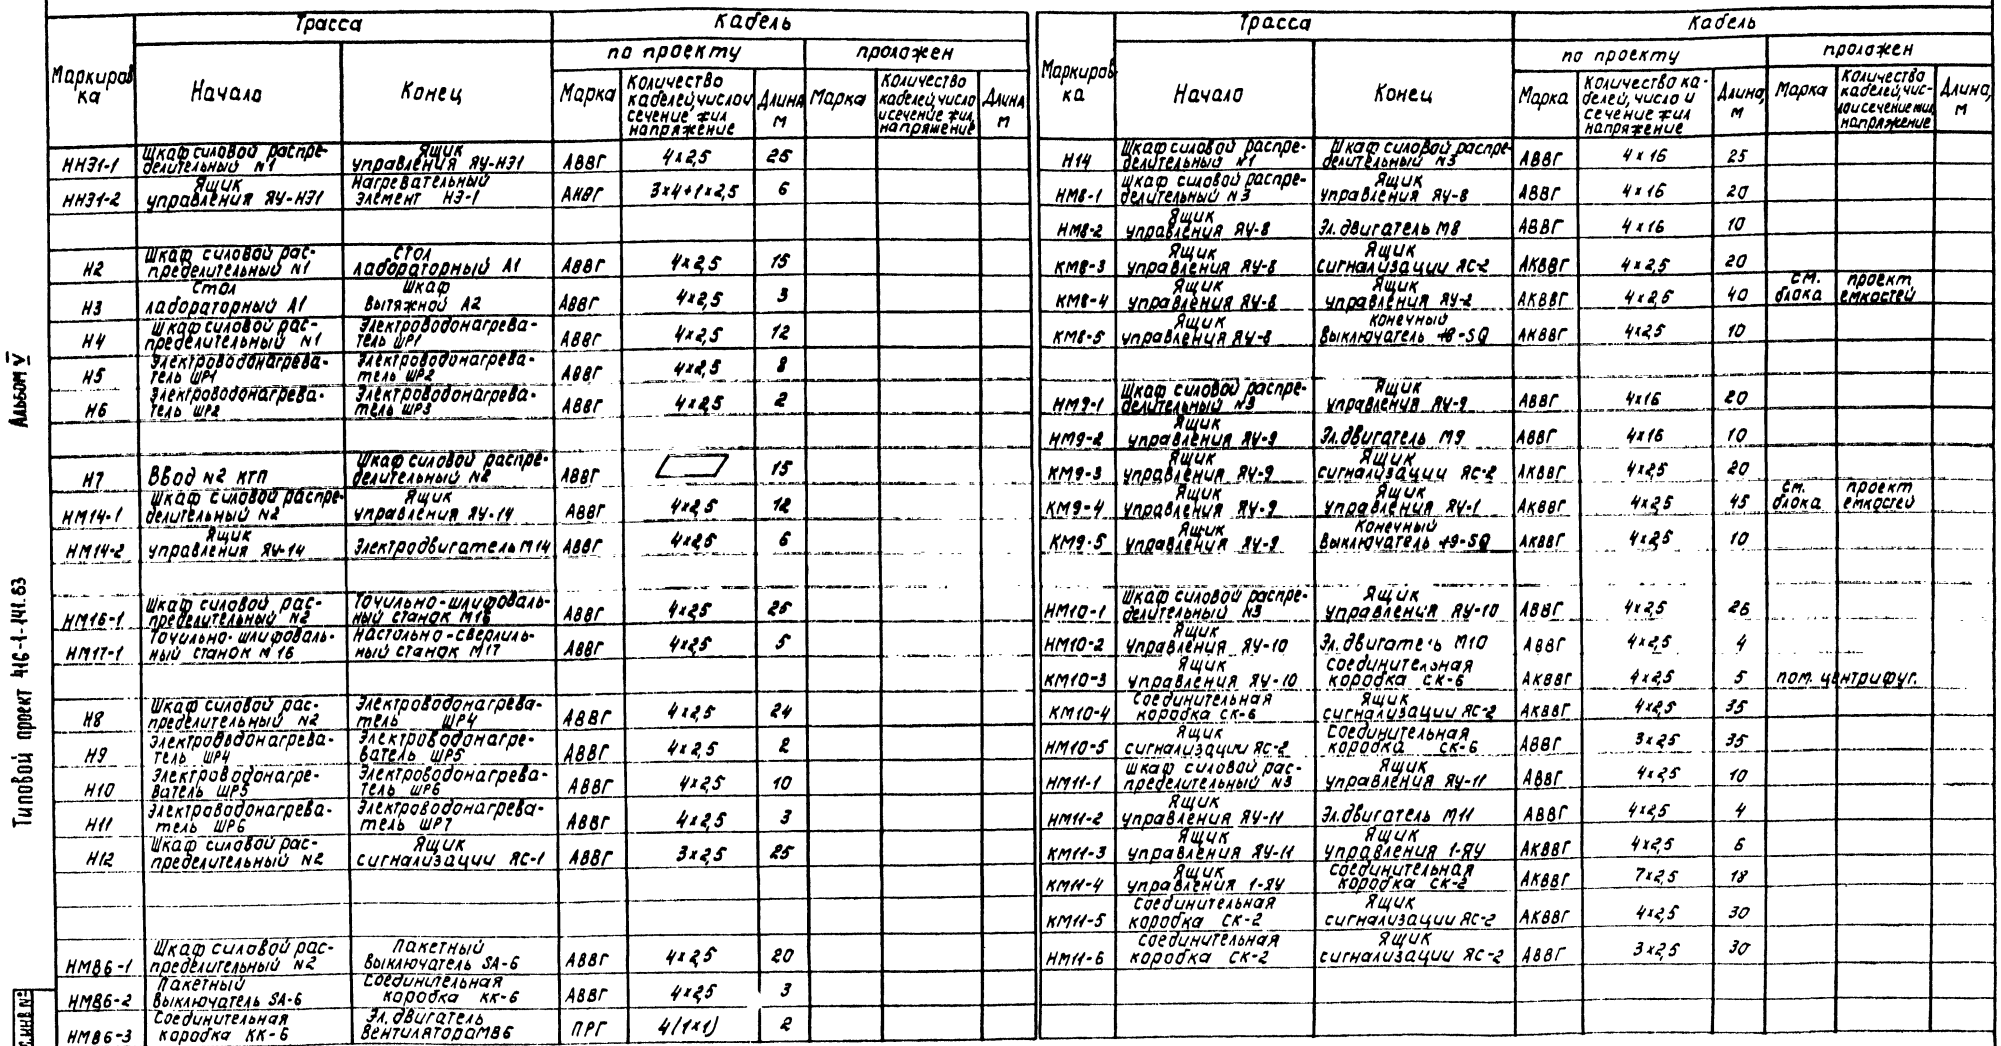 Альбом V
Типовой проект 416-1-141.83
Маркировка | Трасса | Кабель
по проекту | проложен
Начало | Конец | Марка | Количество кабелей, число и сечение жил напряжение | Длина, м | Марка | Количество кабелей, число и сечение жил, напряжение | Длина м
ННЭ1-1 | Шкаф силовой распределительный №1 | Ящик управления ЯУ-НЭ1 | АВВГ | 4х2,5 | 25
ННЭ1-2 | Ящик управления ЯУ-НЭ1 | Нагревательный элемент НЭ-1 | АНВГ | 3х4+1х2,5 | 6
Н2 | Шкаф силовой распределительный №1 | Стол лабораторный А1 | АВВГ | 4х2,5 | 15
Н3 | Стол лабораторный А1 | Шкаф вытяжной А2 | АВВГ | 4х2,5 | 3
Н4 | Шкаф силовой распределительный №1 | Электроводонагреватель ШР1 | АВВГ | 4х2,5 | 12
Н5 | Электроводонагреватель ШР1 | Электроводонагреватель ШР2 | АВВГ | 4х2,5 | 8
Н6 | Электроводонагреватель ШР2 | Электроводонагреватель ШР3 | АВВГ | 4х2,5 | 2
Н7 | Ввод №2 КТП | Шкаф силовой распределительный №2 | АВВГ | 15
НМ14-1 | Шкаф силовой распределительный №2 | Ящик управления ЯУ-14 | АВВГ | 4х2,5 | 12
НМ14-2 | Ящик управления ЯУ-14 | Электродвигатель М14 | АВВГ | 4х2,5 | 6
НМ16-1 | Шкаф силовой распределительный №2 | Точильно-шлифовальный станок М16 | АВВГ | 4х2,5 | 25
НМ17-1 | Точильно-шлифовальный станок М16 | Настольно-сверлильный станок М17 | АВВГ | 4х2,5 | 5
Н8 | Шкаф силовой распределительный №2 | Электроводонагреватель ШР4 | АВВГ | 4х2,5 | 24
Н9 | Электроводонагреватель ШР4 | Электроводонагреватель ШР5 | АВВГ | 4х2,5 | 2
Н10 | Электроводонагреватель ШР5 | Электроводонагреватель ШР6 | АВВГ | 4х2,5 | 10
Н11 | Электроводонагреватель ШР6 | Электроводонагреватель ШР7 | АВВГ | 4х2,5 | 3
Н12 | Шкаф силовой распределительный №2 | Ящик сигнализации ЯС-1 | АВВГ | 3х2,5 | 25
НМВ6-1 | Шкаф силовой распределительный №2 | Пакетный выключатель SA-6 | АВВГ | 4х2,5 | 20
НМВ6-2 | Пакетный выключатель SA-6 | Соединительная коробка КК-6 | АВВГ | 4х2,5 | 3
НМВ6-3 | Соединительная коробка КК-6 | Эл. двигатель вентилятора МВ6 | ПРГ | 4(1х1) | 2
Маркировка | Трасса | Кабель
по проекту | проложен
Начало | Конец | Марка | Количество кабелей, число и сечение жил напряжение | Длина, м | Марка | Количество кабелей, число и сечение жил, напряжение | Длина, м
Н14 | Шкаф силовой распределительный №1 | Шкаф силовой распределительный №3 | АВВГ | 4х16 | 25
НМ8-1 | Шкаф силовой распределительный №3 | Ящик управления ЯУ-8 | АВВГ | 4х16 | 20
НМ8-2 | Ящик управления ЯУ-8 | Эл. двигатель М8 | АВВГ | 4х16 | 10
КМ8-3 | Ящик управления ЯУ-8 | Ящик сигнализации ЯС-2 | АКВВГ | 4х2,5 | 20
КМ8-4 | Ящик управления ЯУ-8 | Ящик управления ЯУ-2 | АКВВГ | 4х2,5 | 40 | см. проект блока емкостей
КМ8-5 | Ящик управления ЯУ-8 | Конечный выключатель -SQ | АКВВГ | 4х2,5 | 10
НМ9-1 | Шкаф силовой распределительный №3 | Ящик управления ЯУ-9 | АВВГ | 4х16 | 20
НМ9-2 | Ящик управления ЯУ-9 | Эл. двигатель М9 | АВВГ | 4х16 | 10
КМ9-3 | Ящик управления ЯУ-9 | Ящик сигнализации ЯС-2 | АКВВГ | 4х2,5 | 20
КМ9-4 | Ящик управления ЯУ-9 | Ящик управления ЯУ-1 | АКВВГ | 4х2,5 | 45 | см. проект блока емкостей
КМ9-5 | Ящик управления ЯУ-9 | Конечный выключатель -SQ | АКВВГ | 4х2,5 | 10
НМ10-1 | Шкаф силовой распределительный №3 | Ящик управления ЯУ-10 | АВВГ | 4х2,5 | 26
НМ10-2 | Ящик управления ЯУ-10 | Эл. двигатель М10 | АВВГ | 4х2,5 | 4
КМ10-3 | Ящик управления ЯУ-10 | Соединительная коробка СК-6 | АКВВГ | 4х2,5 | 5 | пом. центрифуг.
КМ10-4 | Соединительная коробка СК-6 | Ящик сигнализации ЯС-2 | АКВВГ | 4х2,5 | 35
НМ10-5 | Ящик сигнализации ЯС-2 | Соединительная коробка СК-6 | АВВГ | 3х2,5 | 35
НМ11-1 | Шкаф силовой распределительный №3 | Ящик управления ЯУ-11 | АВВГ | 4х2,5 | 10
НМ11-2 | Ящик управления ЯУ-11 | Эл. двигатель М11 | АВВГ | 4х2,5 | 4
КМ11-3 | Ящик управления ЯУ-11 | Ящик управления 1-ЯУ | АКВВГ | 4х2,5 | 6
КМ11-4 | Ящик управления 1-ЯУ | Соединительная коробка СК-2 | АКВВГ | 7х2,5 | 18
КМ11-5 | Соединительная коробка СК-2 | Ящик сигнализации ЯС-2 | АКВВГ | 4х2,5 | 30
НМ11-6 | Соединительная коробка СК-2 | Ящик сигнализации ЯС-2 | АВВГ | 3х2,5 | 30